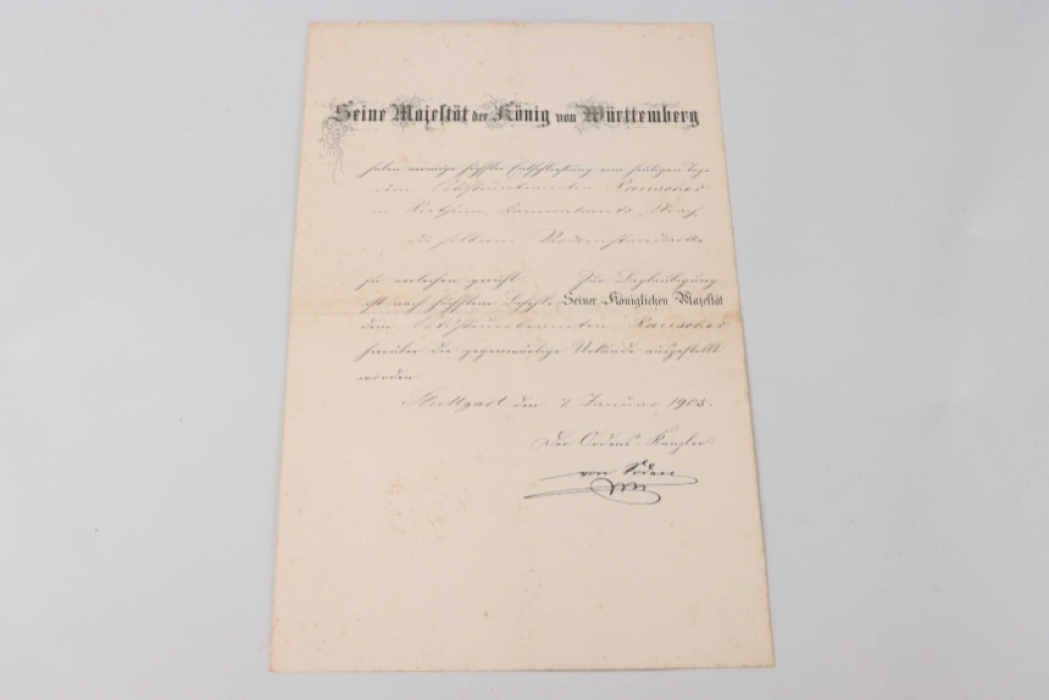 Seine Majestät der König von Württemberg
haben vermöge höchster Entschließung vom heutigen Tage
dem Ortssteuerbeamten Rauscher
in Kameralamts Urach,
die silberne Verdienstmedaille
zu verleihen geruht. Zur Beglaubigung
ist nach höchstem Befehle Seiner Königlichen Majestät
dem Ortssteuerbeamten Rauscher
hierüber die gegenwärtige Urkunde ausgestellt
worden.
Stuttgart, den Januar 1905.
Der Ordens-Kanzler
von Soden